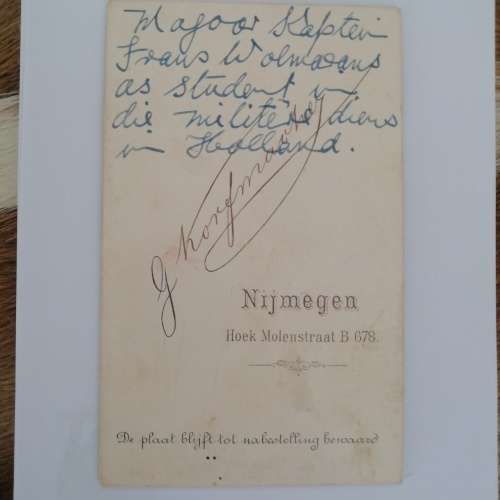 Majoor Kaptein
Frans Wolmarans
as student in
die militêre diens
in Holland.
J Korfmacher
Nijmegen
Hoek Molenstraat B 678.
De plaat blijft tot nabestelling bewaard